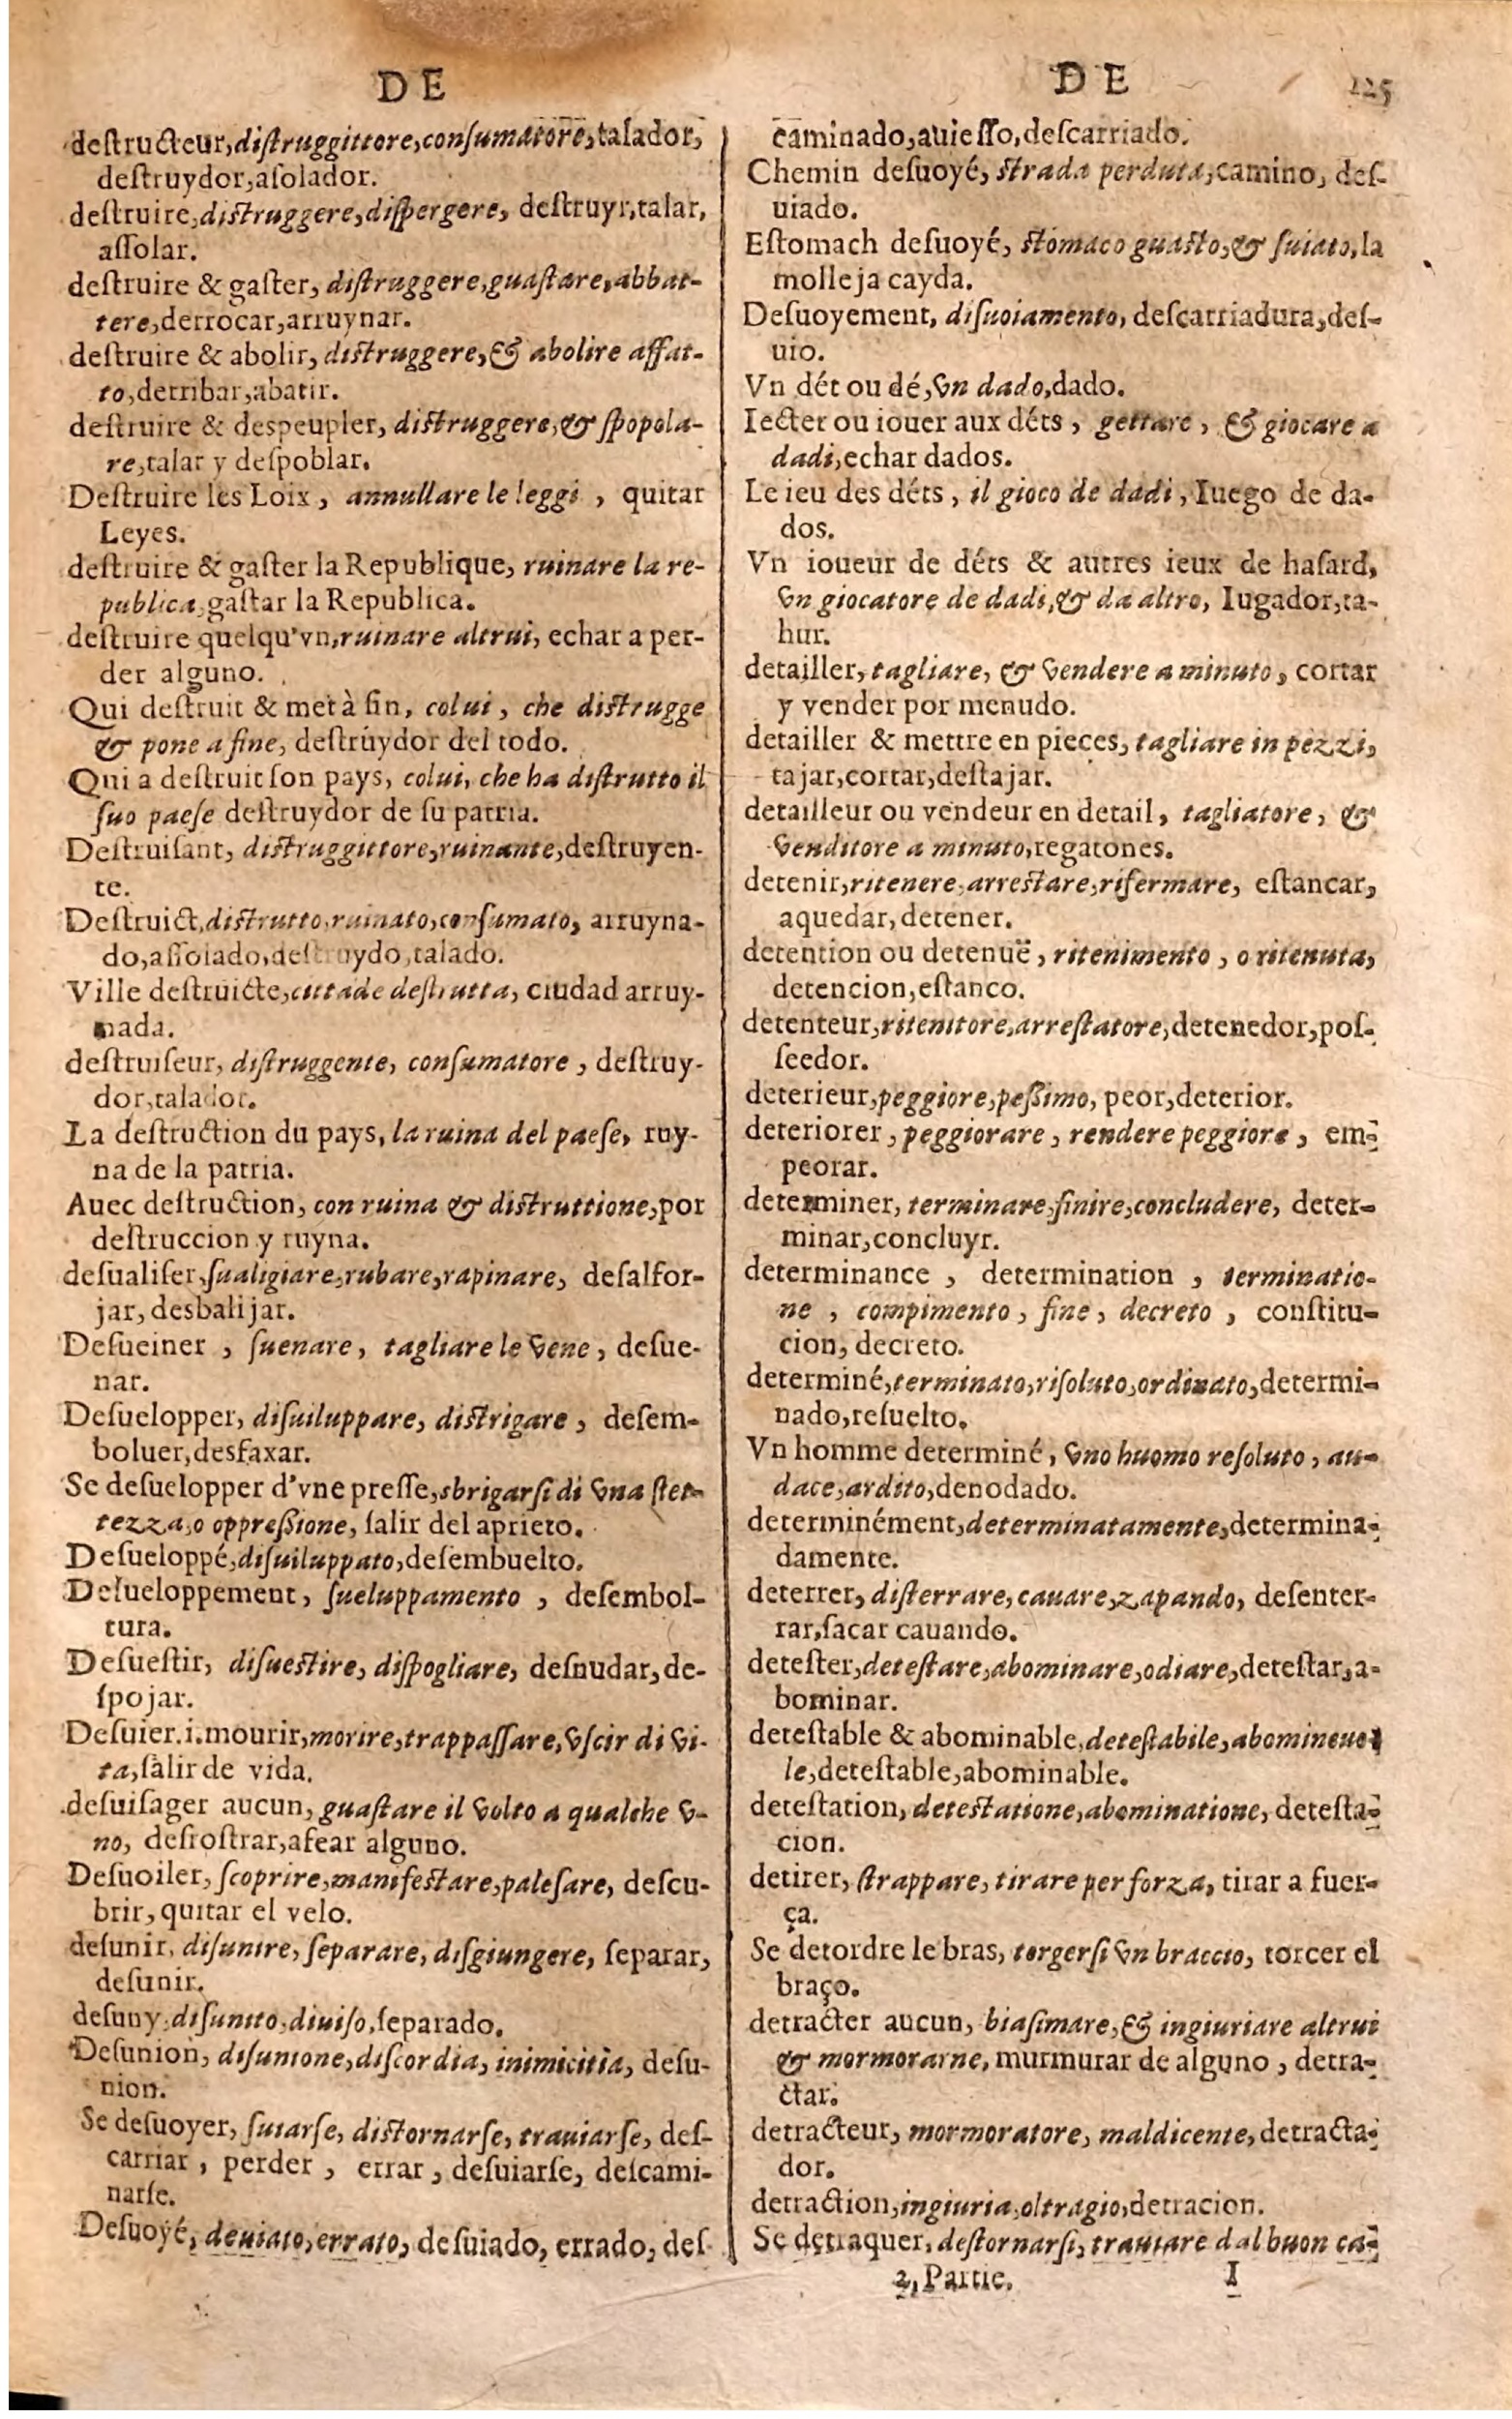 DE
destructeur, distruggittore, consumatore, talador,
destruydor, asolador.
destruire, distruggere, dispergere, destruyr, talar,
assolar.
destruire & gaster, distruggere, guastare, abbat-
tere, derrocar, arruynar.
destruire & abolir, distruggere, & abolire affat-
to, derribar, abatir.
destruire & despeupler, distruggere, & spopola-
re, talar y despoblar.
Destruire les Loix, annullare le leggi, quitar
Leyes.
destruire & gaster la Republique, ruinare la re-
publica, gastar la Republica.
destruire quelqu'vn, ruinare altrui, echar a per-
der alguno.
Qui destruit & met à fin, colui, che distrugge
& pone a fine, destruydor del todo.
Qui a destruit son pays, colui, che ha distrutto il
suo paese destruydor de su patria.
Destruisant, distruggittore, ruinante, destruyen-
te.
Destruict, distrutto, ruinato, consumato, arruyna-
do, assolado, destruydo, talado.
Ville destruicte, cittade destrutta, ciudad arruy-
nada.
destruiseur, distruggente, consumatore, destruy-
dor, talador.
La destruction du pays, la ruina del paese, ruy-
na de la patria.
Auec destruction, con ruina & distruttione, por
destruccion y ruyna.
desualiser, sualigiare, rubare, rapinare, desalfor-
jar, desbalijar.
Desueiner, suenare, tagliare le vene, desue-
nar.
Desuelopper, disuiluppare, distrigare, desem-
boluer, desfaxar.
Se desuelopper d'vne presse, sbrigarsi di vna stet-
tezza, o oppressione, salir del aprieto.
Desueloppé, disuiluppato, desembuelto.
Desueloppement, sueluppamento, desembol-
tura.
Desuestir, disuestire, dispogliare, desnudar, de-
spojar.
Desuier. i. mourir, morire, trappassare, vscir di vi-
ta, salir de vida.
desuisager aucun, guastare il volto a qualche v-
no, desrostrar, afear alguno.
Desuoiler, scoprire, manifestare, palesare, descu-
brir, quitar el velo.
desunir, disunire, separare, disgiungere, separar,
desunir.
desuny, disunito, diuiso, separado.
Desunion, disunione, discordia, inimicitia, desu-
nion.
Se desuoyer, suiarse, distornarse, trauiarse, des-
carriar, perder, errar, desuiarse, descami-
narse.
Desuoyé, deuiato, errato, desuiado, errado, des
DE 125
caminado, auiesso, descarriado.
Chemin desuoyé, strada perduta, camino, des-
uiado.
Estomach desuoyé, stomaco guasto, & suiato, la
molleja cayda.
Desuoyement, disuoiamento, descarriadura, des-
uio.
Vn dét ou dé, vn dado, dado.
Iecter ou iouer aux déts, gettare, & giocare a
dadi, echar dados.
Le ieu des déts, il gioco de dadi, Iuego de da-
dos.
Vn ioueur de déts & autres ieux de hasard,
vn giocatore de dadi, & da altro, Iugador, ta-
hur.
detailler, tagliare, & vendere a minuto, cortar
y vender por menudo.
detailler & mettre en pieces, tagliare in pezzi,
tajar, cortar, destajar.
detailleur ou vendeur en detail, tagliatore, &
venditore a minuto, regatones.
detenir, ritenere, arrestare, rifermare, estancar,
aquedar, detener.
detention ou detenuë, ritenimento, o ritenuta,
detencion, estanco.
detenteur, ritenitore, arrestatore, detenedor, pos-
seedor.
deterieur, peggiore, pessimo, peor, deterior.
deteriorer, peggiorare, rendere peggiore, em-
peorar.
determiner, terminare, finire, concludere, deter-
minar, concluyr.
determinance, determination, terminatio-
ne, compimento, fine, decreto, constitu-
cion, decreto.
determiné, terminato, risoluto, ordinato, determi-
nado, resuelto.
Vn homme determiné, vno huomo resoluto, au-
dace, ardito, denodado.
determinément, determinatamente, determina-
damente.
deterrer, disterrare, cauare, zapando, desenter-
rar, sacar cauando.
detester, detestare, abominare, odiare, detestar, a-
bominar.
detestable & abominable, detestabile, abomineuo-
le, detestable, abominable.
detestation, detestatione, abominatione, detesta-
cion.
detirer, strappare, tirare per forza, tirar a fuer-
ça.
Se detordre le bras, torgersi vn braccio, torcer el
braço.
detracter aucun, biasimare, & ingiuriare altrui
& mormorarne, murmurar de alguno, detra-
ctar.
detracteur, mormoratore, maldicente, detracta-
dor.
detraction, ingiuria, oltragio, detracion.
Se detraquer, destornarsi, trauiare dal buon ca-
2, Partie. I